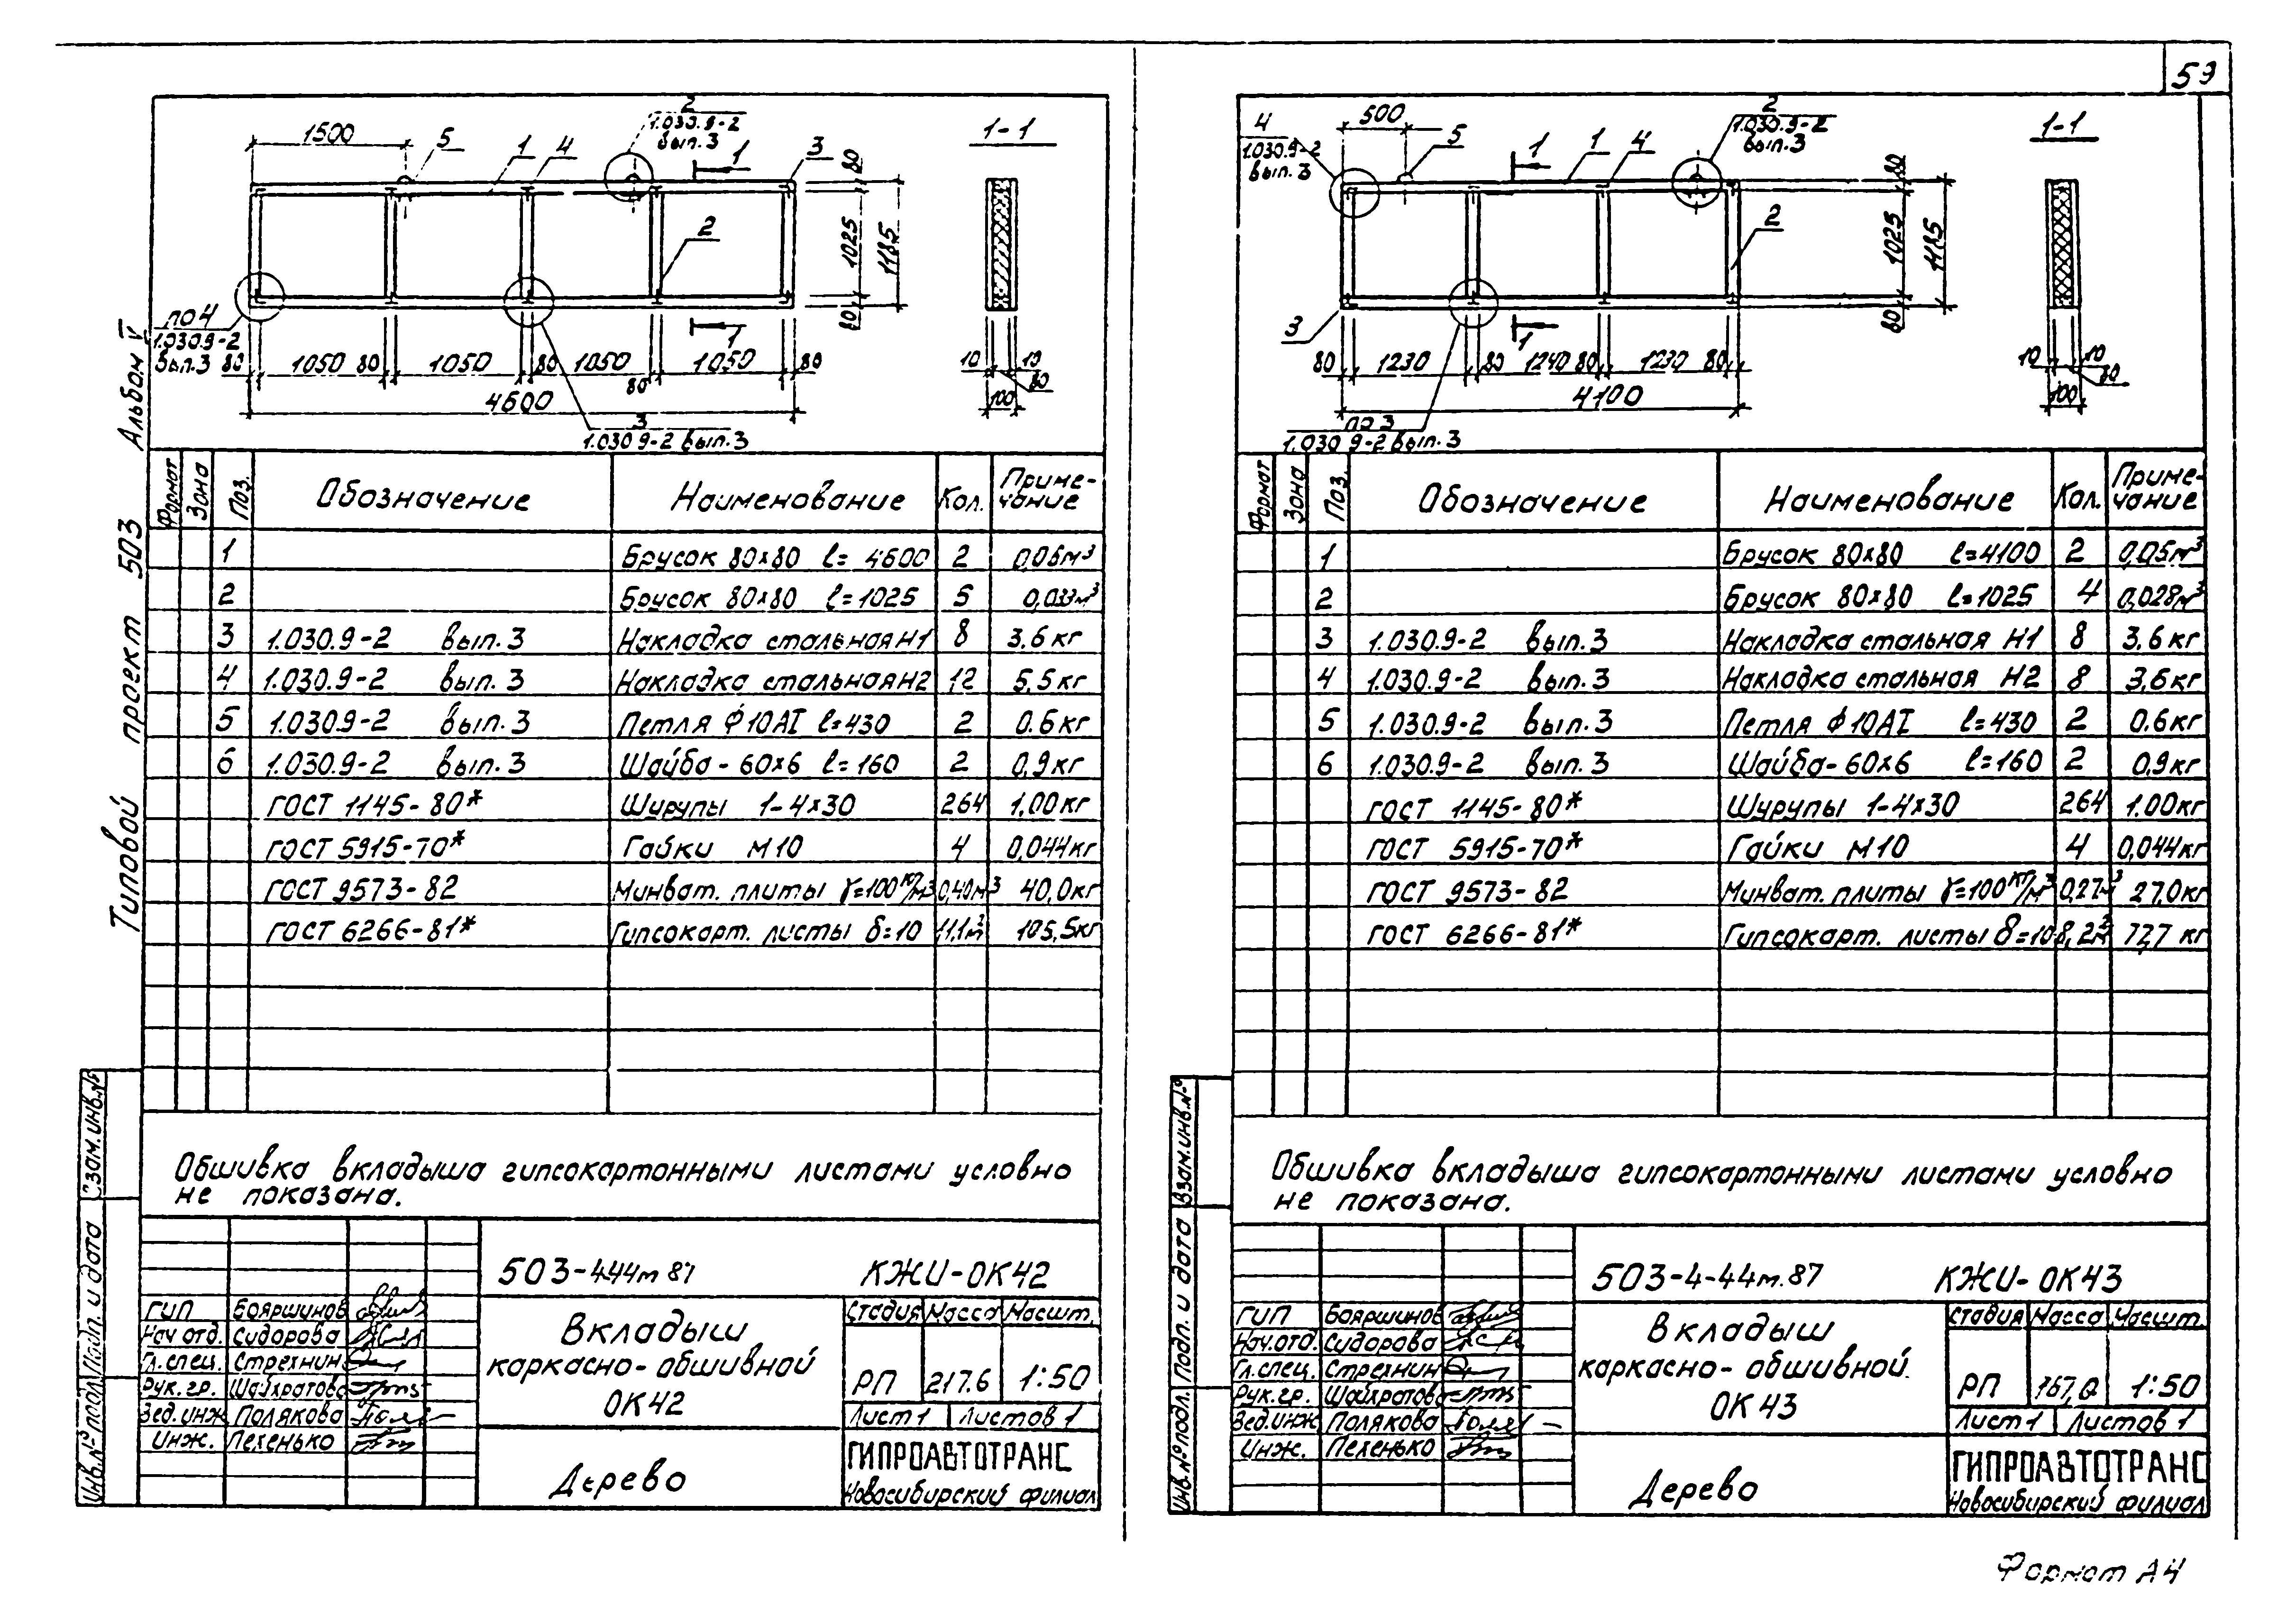 59
Типовой проект 503 Альбом V
1500
5
1
4
2
1.030.9-2
вып.3
1
3
1-1
80
1025
1185
80
2
по 4
1.030.9-2
вып.3
80 1050 80 1050 80 1050 80 1050 80
4600
1
3
1.030.9-2 вып.3
10 10
80
100
Формат Зона Поз. Обозначение Наименование Кол. Приме-
чание
1 Брусок 80х80 ℓ= 4600 2 0,06м³
2 Брусок 80х80 ℓ=1025 5 0,033м³
3 1.030.9-2 вып.3 Накладка стальная Н1 8 3.6 кг
4 1.030.9-2 вып.3 Накладка стальная Н2 12 5,5 кг
5 1.030.9-2 вып.3 Петля Ф10АI ℓ=430 2 0.6 кг
6 1.030.9-2 вып.3 Шайба - 60х6 ℓ=160 2 0,9 кг
ГОСТ 1145-80* Шурупы 1-4х30 264 1,00 кг
ГОСТ 5915-70* Гайки М10 4 0,044 кг
ГОСТ 9573-82 Минват. плиты γ=100 кг/м3 0,40м3 40,0 кг
ГОСТ 6266-81* Гипсокарт. листы δ=10 11,1м² 105,5 кг
Обшивка вкладыша гипсокартонными листами условно
не показана.
Взам.инв.№
Подп. и дата
Инв.№ подл.
503-4-44м 87 КЖИ-ОК42
ГИП Бояршинов
Нач отд. Сидорова
Гл.спец. Стрехнин
Рук.гр. Шайхратова
Вед.инж. Полякова
Инж. Пехенько
Вкладыш
каркасно-обшивной
ОК42
Стадия Масса Масшт.
РП 217.6 1:50
Лист 1 Листов 1
Дерево
ГИПРОАВТОТРАНС
Новосибирский филиал
4
1.030.9-2
вып.3
500
5
1
1
4
2
1.030.9-2
вып.3
1-1
80
1025
1185
80
2
3
1
80 1230 80 1240 80 1230 80
4100
по 3
1.030.9-2 вып.3
10 10
80
100
Формат Зона Поз. Обозначение Наименование Кол. Приме-
чание
1 Брусок 80х80 ℓ=4100 2 0,05м³
2 Брусок 80х80 ℓ=1025 4 0,028м³
3 1.030.9-2 вып.3 Накладка стальная Н1 8 3,6 кг
4 1.030.9-2 вып.3 Накладка стальная Н2 8 3,6 кг
5 1.030.9-2 вып.3 Петля Ф10АI ℓ=430 2 0.6 кг
6 1.030.9-2 вып.3 Шайба- 60х6 ℓ=160 2 0,9 кг
ГОСТ 1145-80* Шурупы 1-4х30 264 1.00 кг
ГОСТ 5915-70* Гайки М10 4 0,044 кг
ГОСТ 9573-82 Минват. плиты γ=100 кг/м3 0,27м3 27,0 кг
ГОСТ 6266-81* Гипсокарт. листы δ=10 8,2м² 77,7 кг
Обшивка вкладыша гипсокартонными листами условно
не показана.
Взам.инв.№
Подп. и дата
Инв.№ подл.
503-4-44м.87 КЖИ-ОК43
ГИП Бояршинов
Нач.отд. Сидорова
Гл.спец. Стрехнин
Рук.гр. Шайхратова
Вед.инж. Полякова
Инж. Пехенько
Вкладыш
каркасно-обшивной
ОК43
Стадия Масса Масшт.
РП 167,0 1:50
Лист 1 Листов 1
Дерево
ГИПРОАВТОТРАНС
Новосибирский филиал
Формат А4